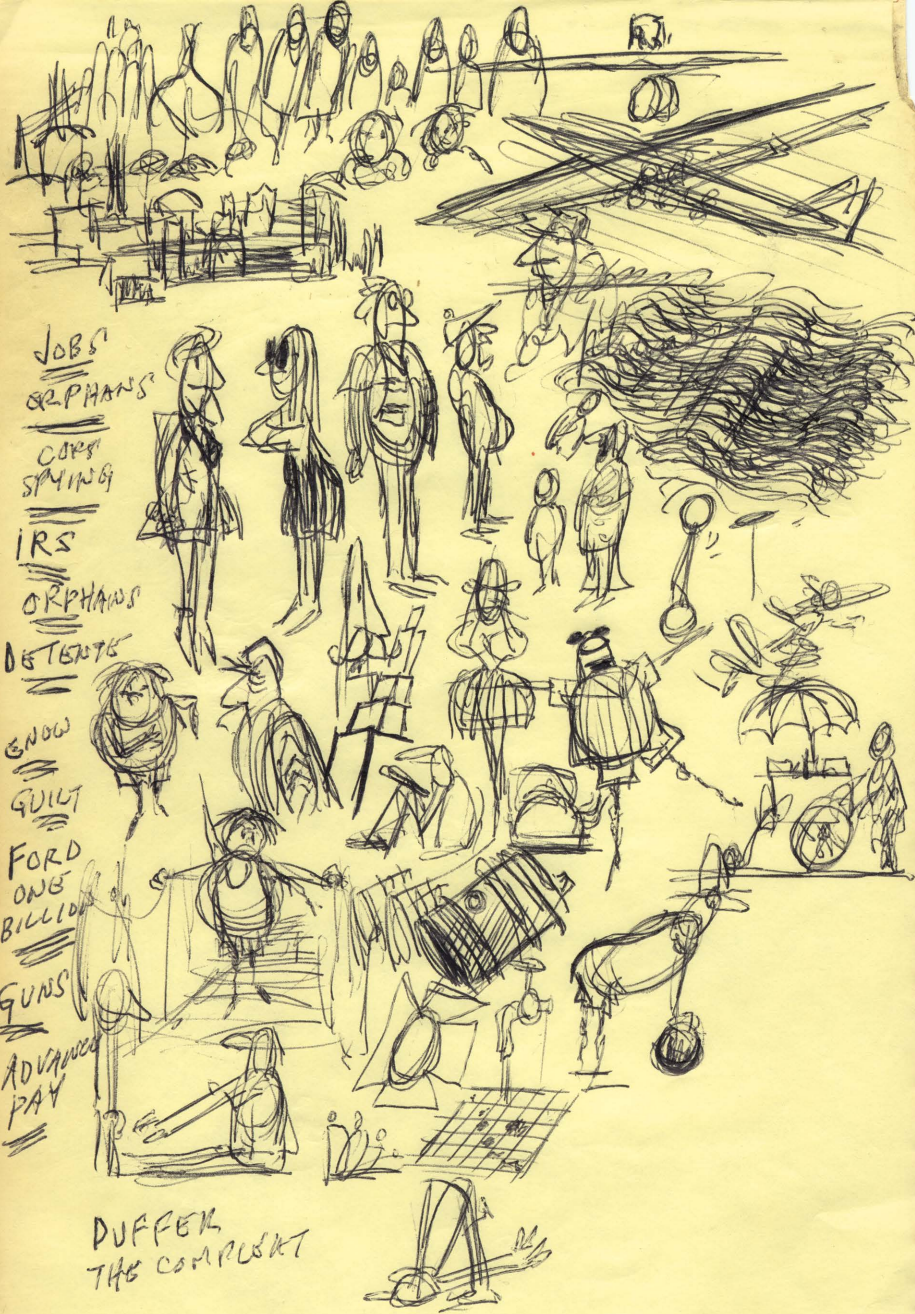 JOBS
ORPHANS
COPS
SPYING
IRS
ORPHANS
DETENTE
SNOW
GUILT
FORD
ONE
BILLION
GUNS
ADVANCE
PAY
DUFFER
THE COMPLEAT